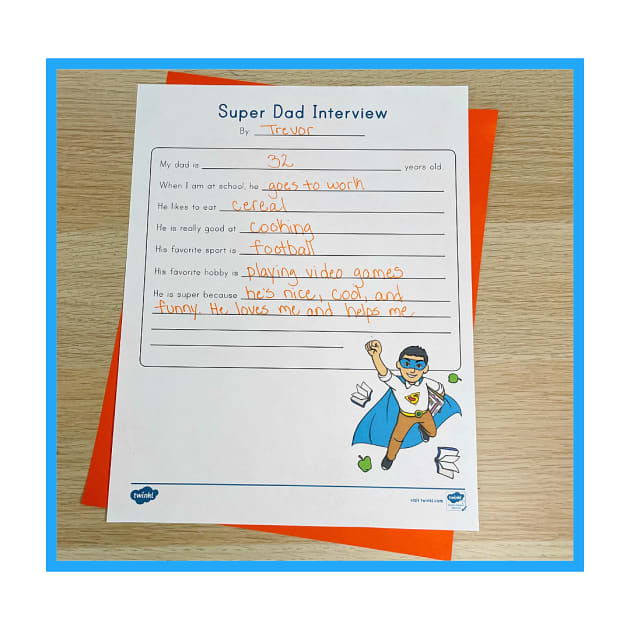 Super Dad Interview
By Trevor
My dad is 32 years old.
When I am at school, he goes to work
He likes to eat cereal
He is really good at cooking
His favorite sport is football
His favorite hobby is playing video games
He is super because he's nice, cool, and
funny. He loves me and helps me.
S
twinkl
visit twinkl.com
twinkl